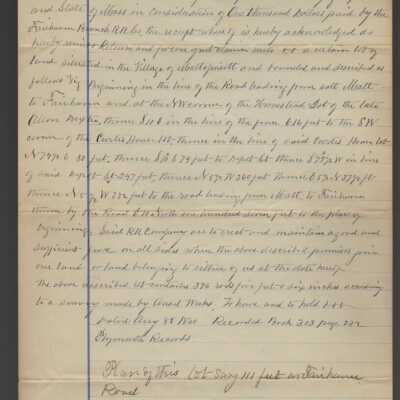 and State of Mass in consideration of One thousand Dollars paid by the
Fairhaven Branch RR Co the receipt whereof is hereby acknowledged do
hereby remise Release and forever quit claim unto a certain lot of
land situated in the Village of Mattapoisett and bounded and described as
follows Viz Beginning in the line of the Road leading from said Matt
to Fairhaven and at the NW corner of the Homestead Lot of the late
thence S 10 E in the line of the same 616 feet to the SW
corner of the Curtis House lot, thence in the line of said Curtis House lot
feet, thence 79 feet to Depot lot thence in line
of said Depot lot 247 feet, thence 360 feet thence
thence N W 222 feet to the road leading from Matt. to Fairhaven
thence by the Road North one hundred seven feet to the place of
beginning. Said RR Company are to erect and maintain a good and
sufficient fence on all sides where the above described premises join
our land or land belonging to either of us at the date hereof.
The above described lot contains 376 rods five feet & six inches according
to a survey made by Weeks. To have and to hold
Dated Aug 88 Recorded Book 263 page 222
Plymouth Records
Plan of this lot say 111 feet on Fairhaven
Road